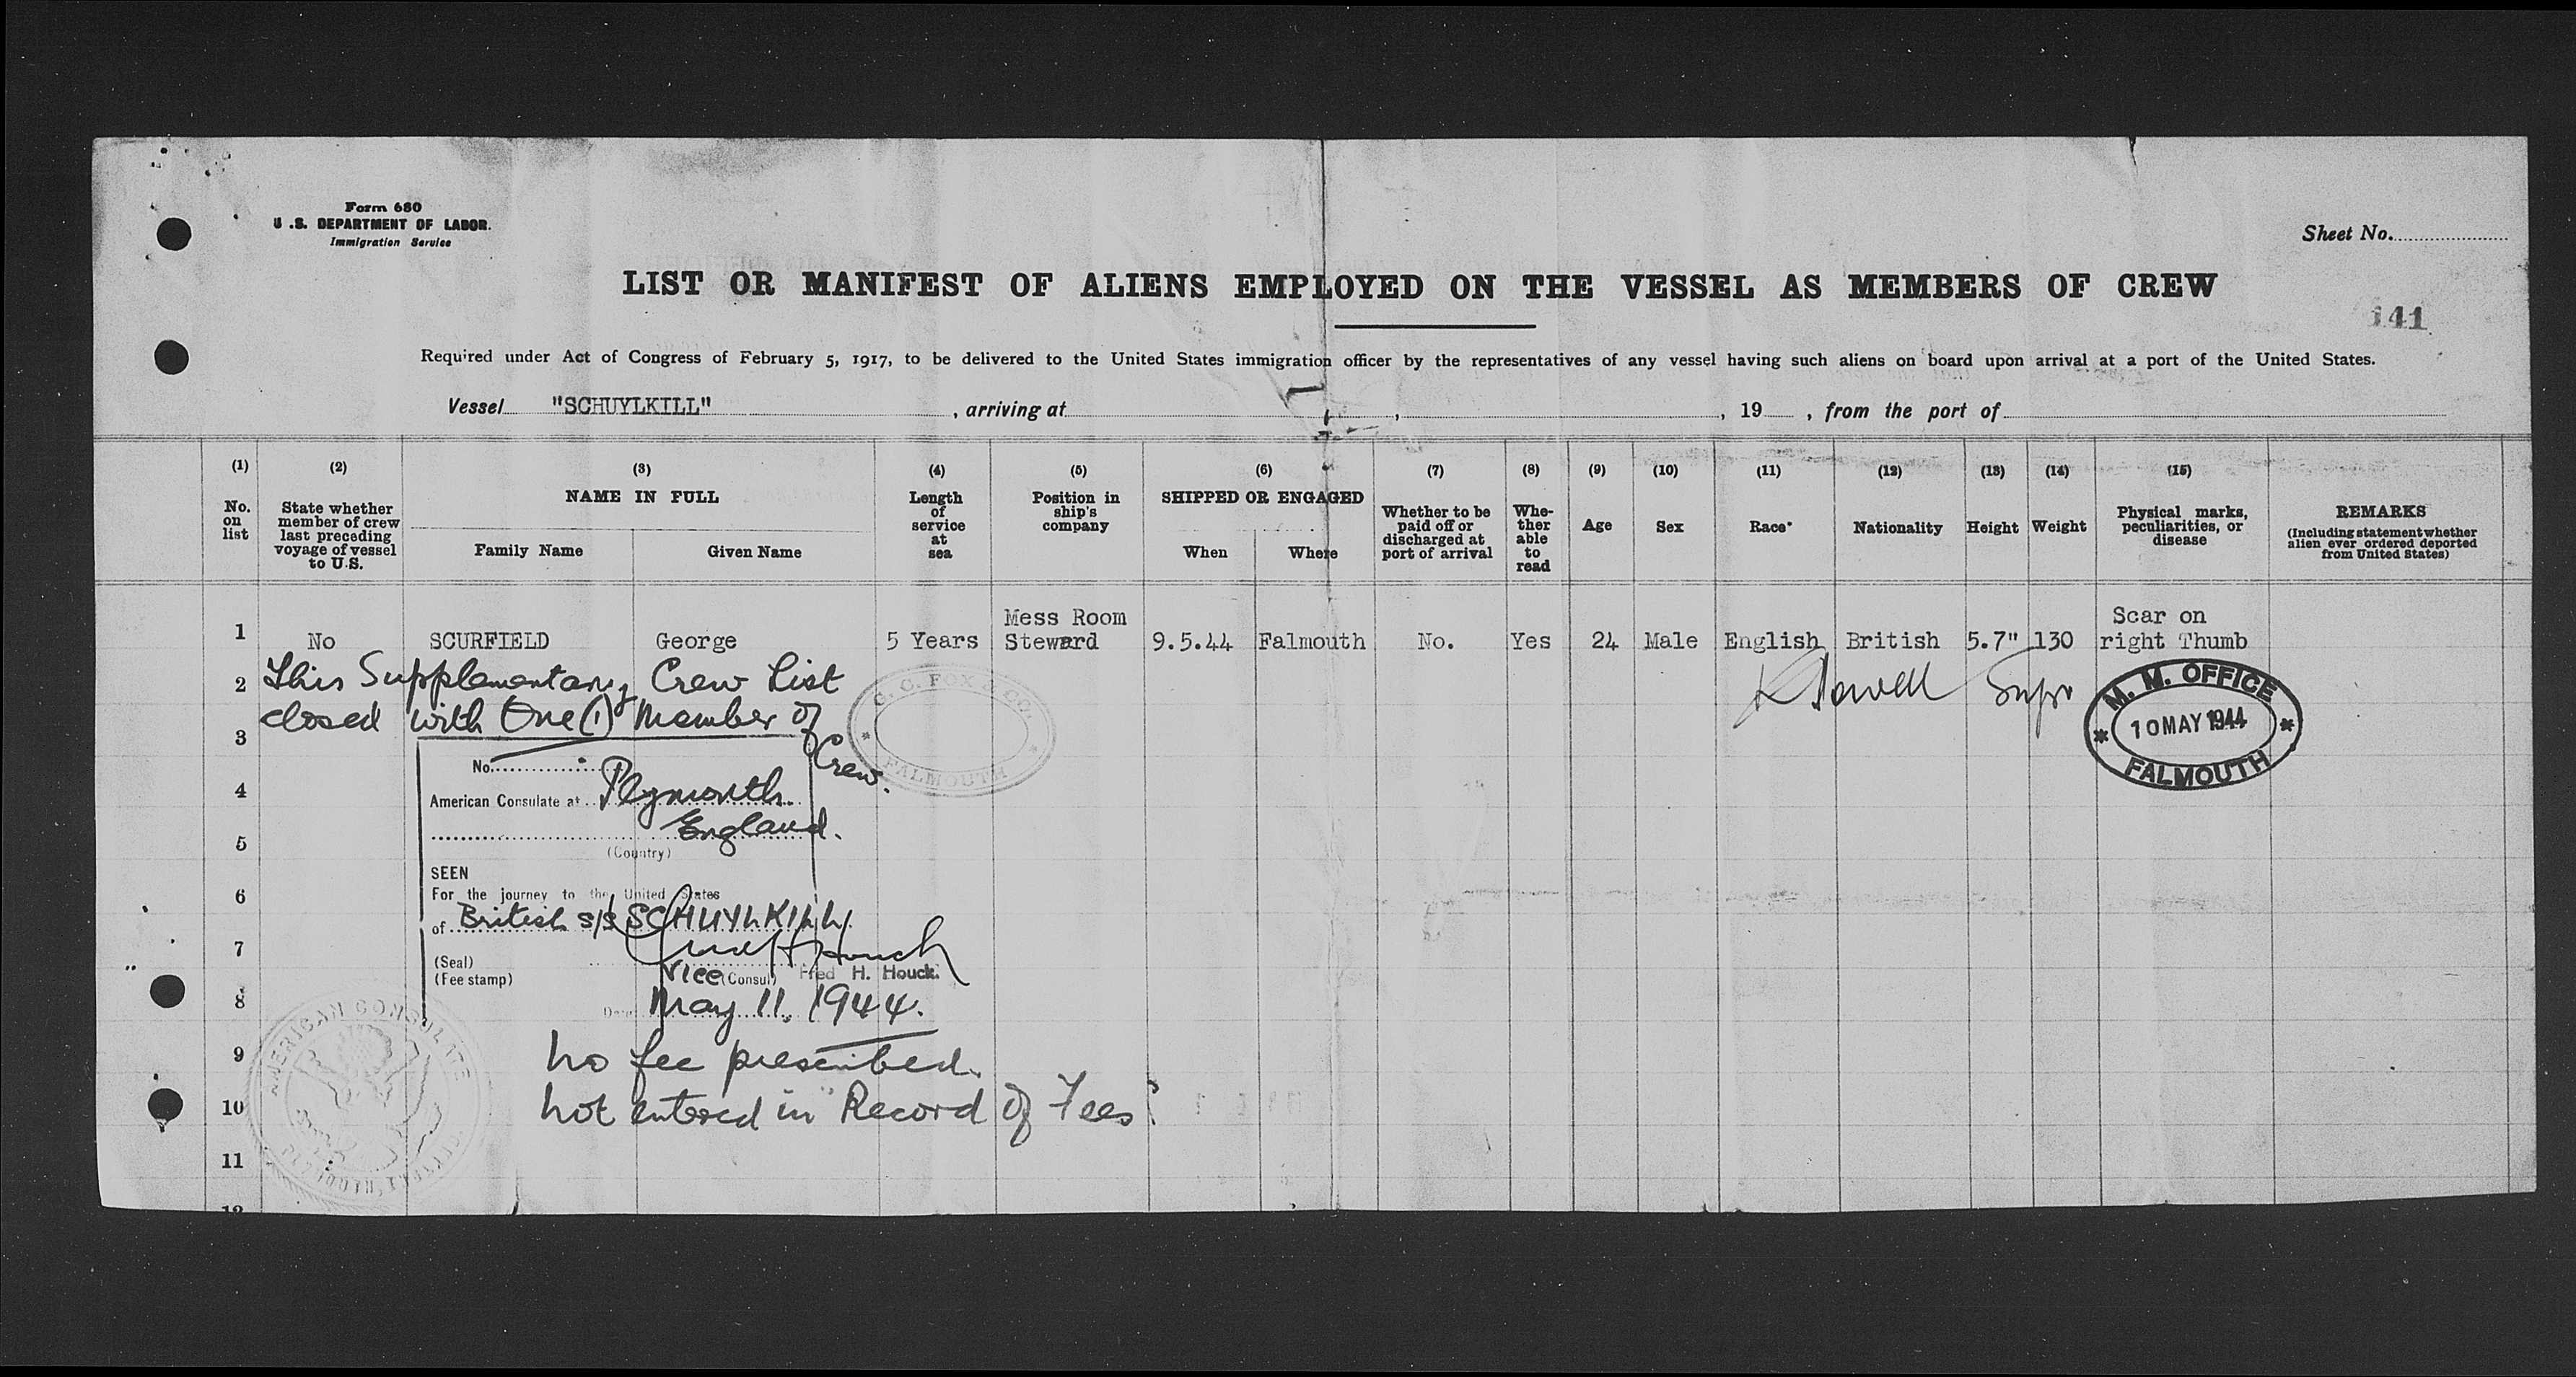 Form 680
U.S. DEPARTMENT OF LABOR.
Immigration Service
Sheet No.
LIST OR MANIFEST OF ALIENS EMPLOYED ON THE VESSEL AS MEMBERS OF CREW
141
Required under Act of Congress of February 5, 1917, to be delivered to the United States immigration officer by the representatives of any vessel having such aliens on board upon arrival at a port of the United States.
Vessel "SCHUYLKILL" , arriving at , , 19 , from the port of
(1) (2) (3) (4) (5) (6) (7) (8) (9) (10) (11) (12) (13) (14) (15)
No. on list
State whether member of crew last preceding voyage of vessel to U.S.
NAME IN FULL
Family Name
Given Name
Length of service at sea
Position in ship's company
SHIPPED OR ENGAGED
When
Where
Whether to be paid off or discharged at port of arrival
Whe-ther able to read
Age
Sex
Race*
Nationality
Height
Weight
Physical marks, peculiarities, or disease
REMARKS
(Including statement whether alien ever ordered deported from United States)
1 No SCURFIELD George 5 Years Mess Room Steward 9.5.44 Falmouth No. Yes 24 Male English British 5.7" 130 Scar on right Thumb
2 This Supplementary Crew List
closed with One (1) Member of
Crew.
G. C. FOX & CO.
FALMOUTH
M. M. OFFICE
10 MAY 1944
FALMOUTH
3
No.
4
American Consulate at Plymouth
England.
5
(Country)
SEEN
6
For the journey to the United States
of British s/s SCHUYLKILL
7
(Seal)
Vice (Consul) Fred H. Houck.
(Fee stamp)
8
Date May 11, 1944.
AMERICAN CONSULATE
9
No fee prescribed.
10
Not entered in "Record of Fees"
11
12